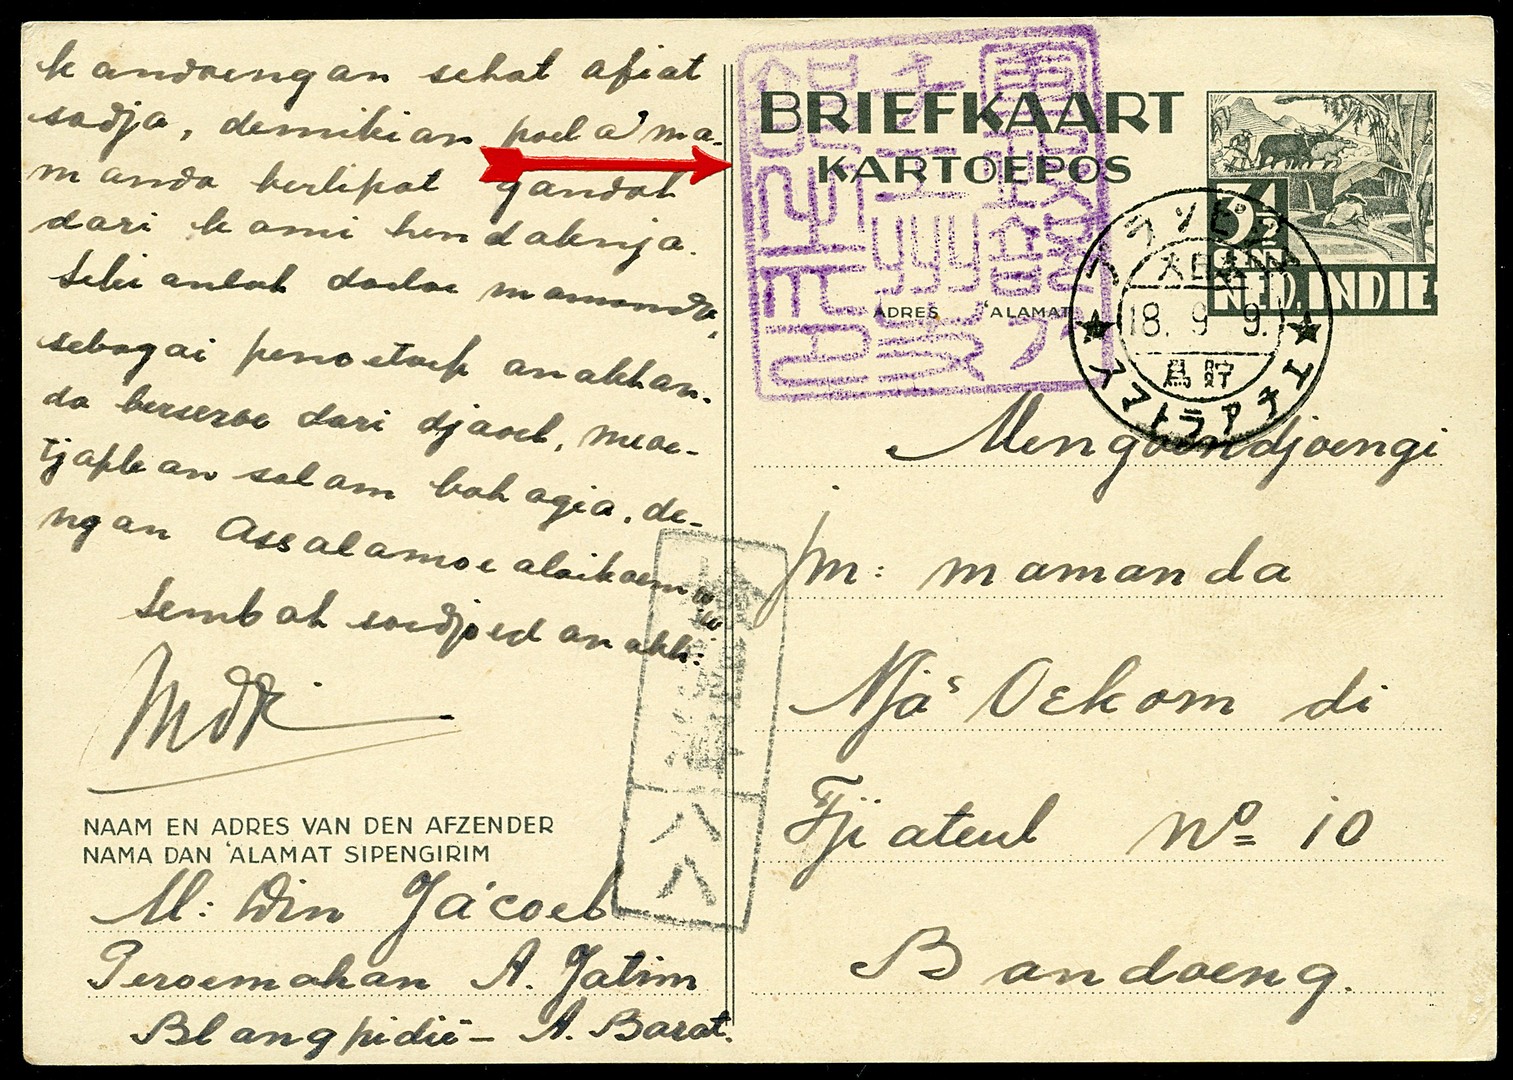 kandoengan sehat afiat
sadja, demikian poela ma-
manda berlipat gandah
dari kami hendaknja.
Sekianlah doeloe mamanda,
sebagai penoetoep anakhan-
da berseroe dari djaoeh, meoe-
tjapkan salam bahagia, de-
ngan Assalamoe alaikoem
w
w
Sembah soedjoed anakh:
NAAM EN ADRES VAN DEN AFZENDER
NAMA DAN 'ALAMAT SIPENGIRIM
M: Din Jácoeb
Peroemahan A. Jatim
Blangpidië - A. Barat.
BRIEFKAART
KARTOEPOS
ADRES 'ALAMAT
3½
SEN
NED. INDIE
ブランピジエ
大日本
18. 9 9.
爲貯
スマトラアチエ
八八
Mengoendjoengi
pm: mamanda
Njá's Oekom di
Tjiateul No 10
Bandoeng.